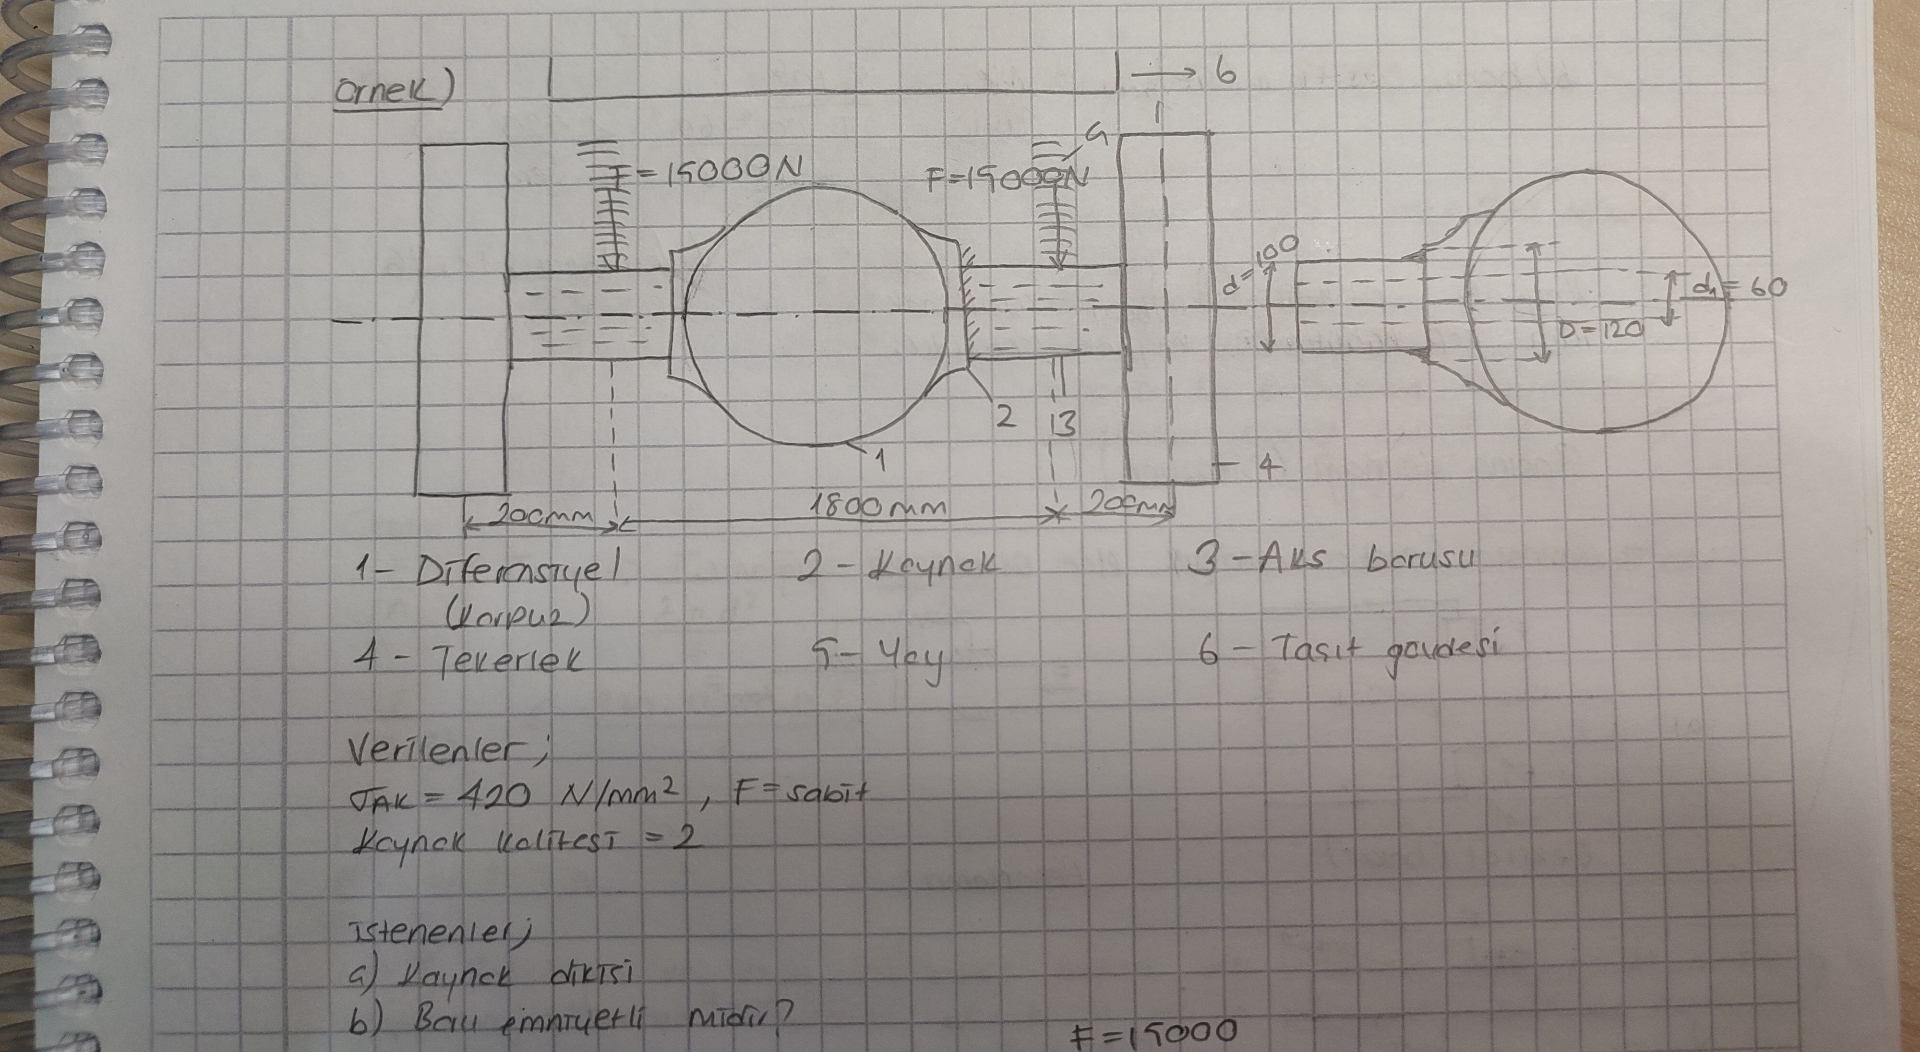 Örnek)
→ 6
5
F=15000N
F=15000N
d=100
d1=60
D=120
2
13
1
4
200mm
1800mm
200mm
1- Diferansiyel
2- Kaynak
3- Aks borusu
(Karpuz)
4- Tekerlek
5- Yay
6- Taşıt gövdesi
Verilenler;
σAK = 420 N/mm², F=sabit
Kaynak kalitesi = 2
İstenenler;
a) Kaynak dikişi
b) Boru emniyetli midir?
F=15000